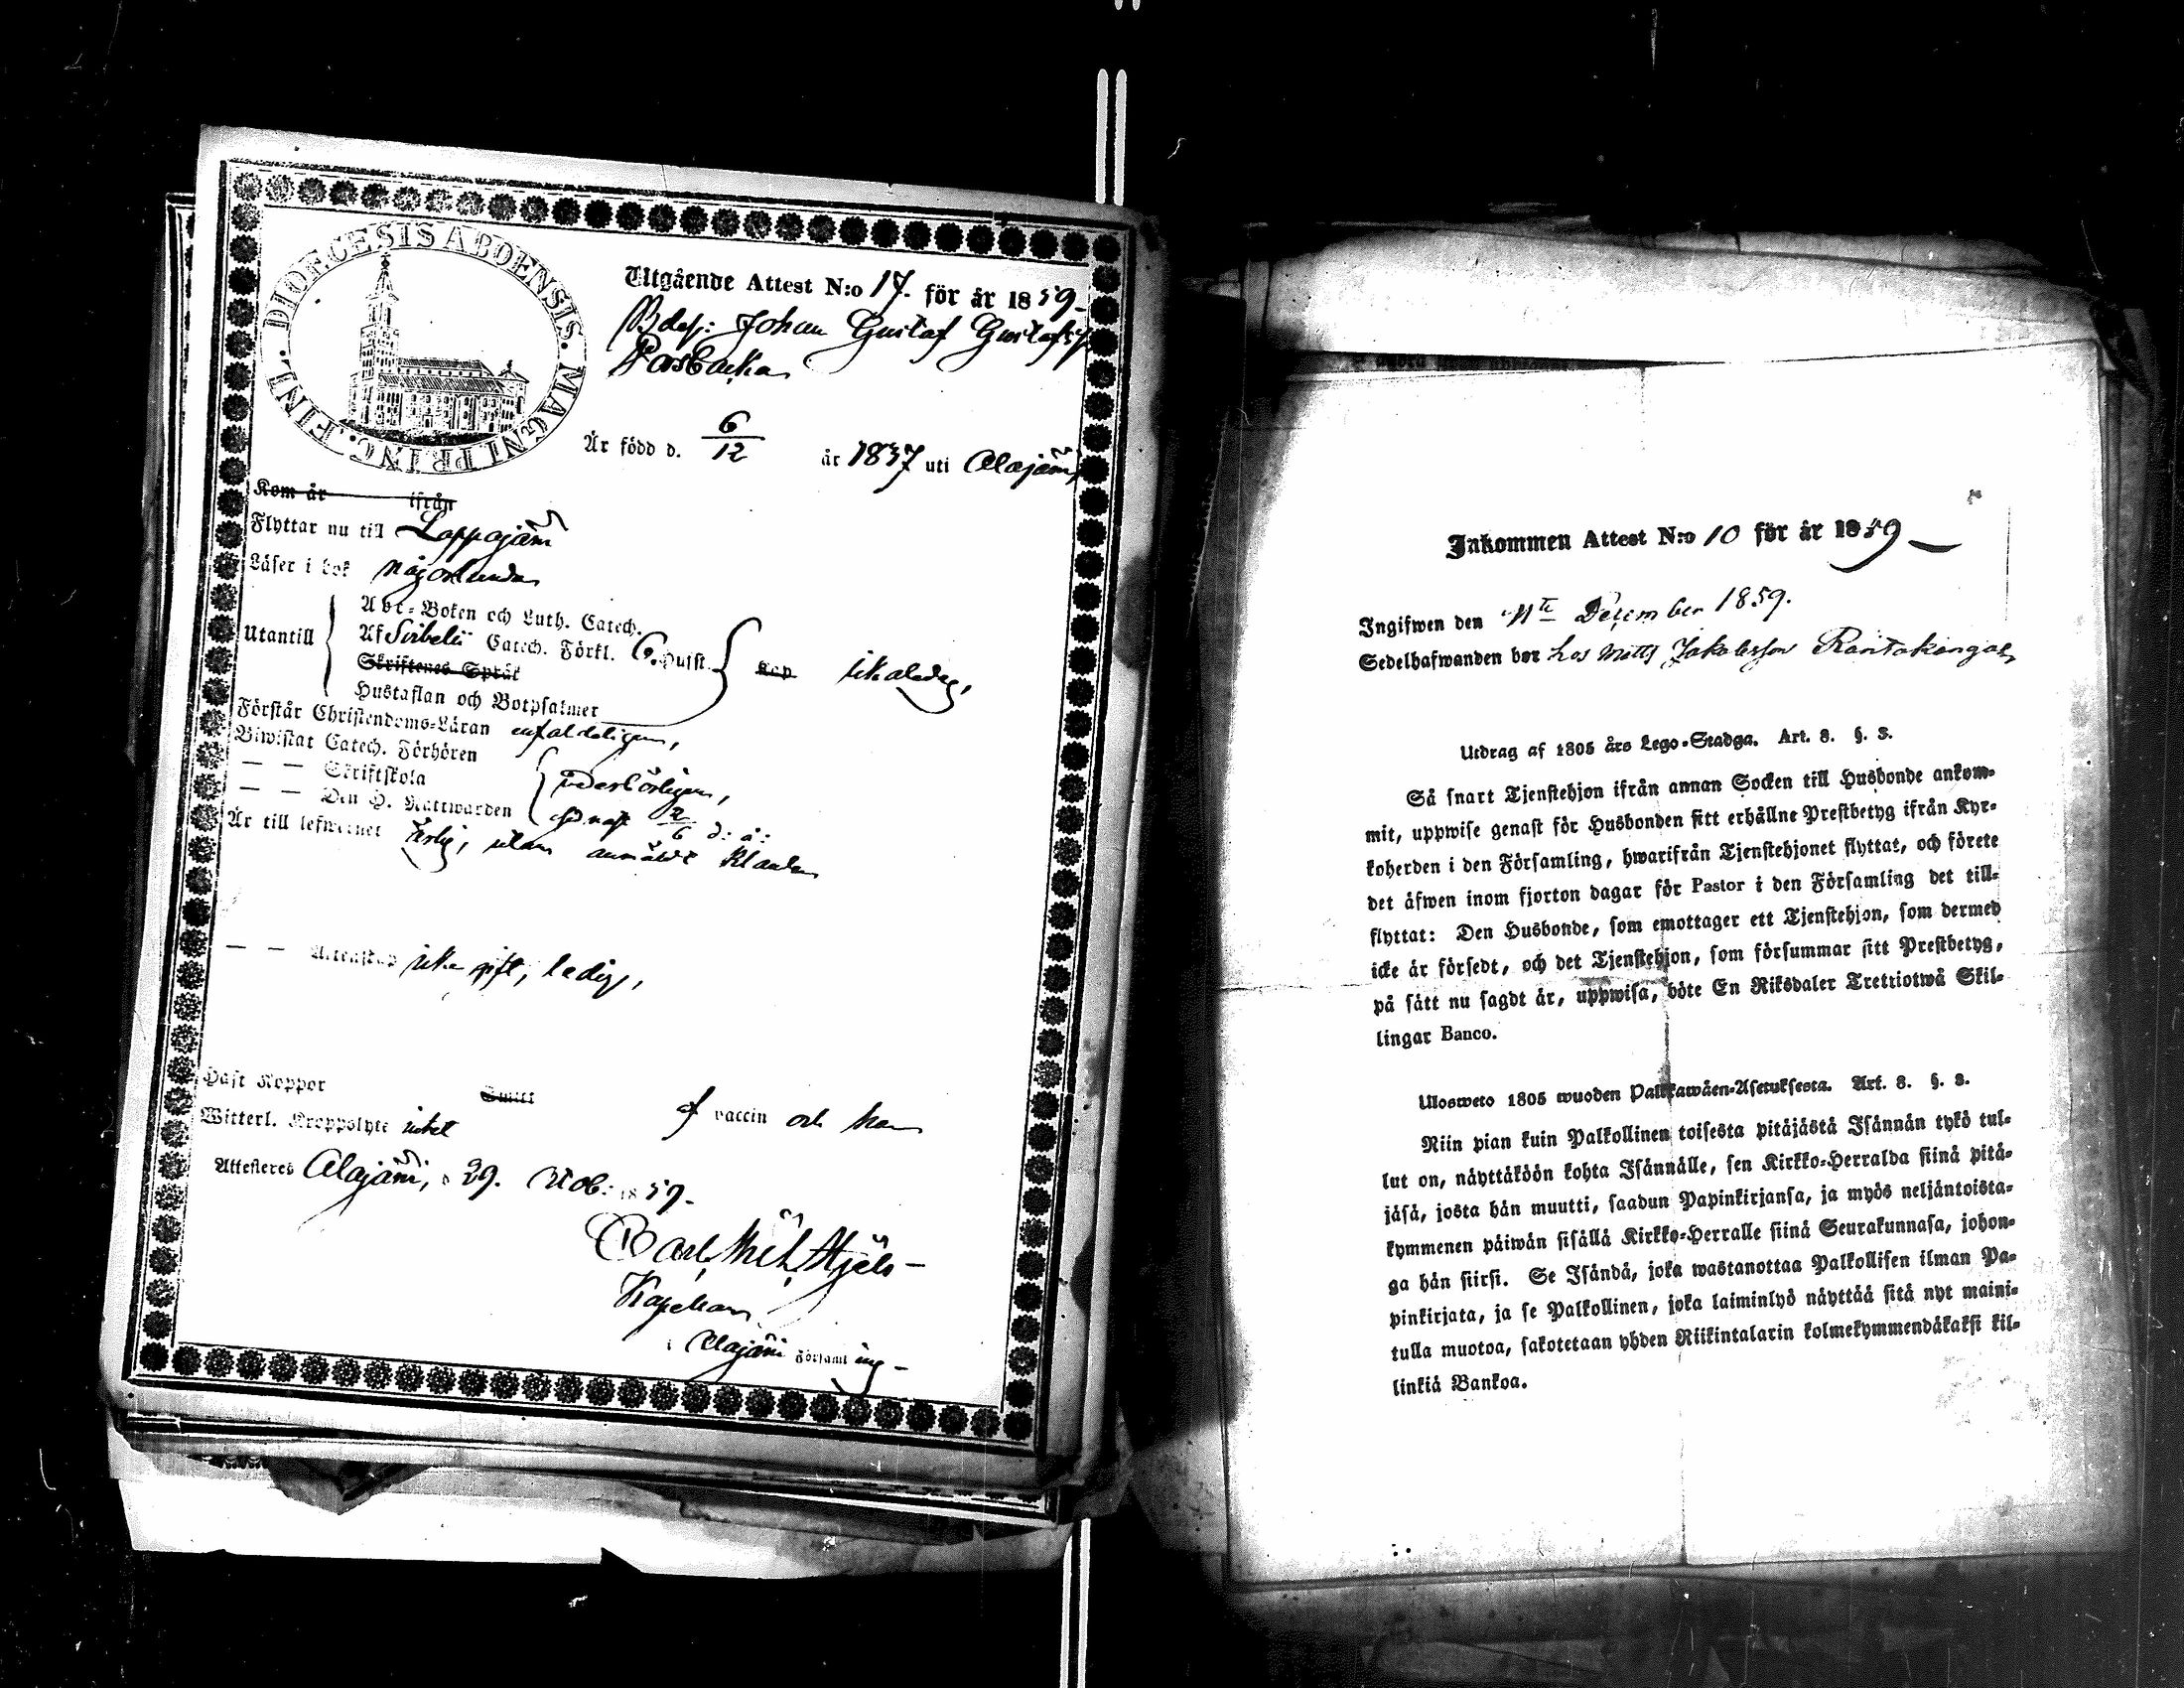 DIOECESIS ABOENSIS. MAGNI PRINC. FINL.
Utgående Attest N:o 17. för år 1859
Johan Gustaf Gustafss:
Är född d. 6/12 år 1837 uti Alajärvi
Kom år ifrån
Flyttar nu till Lappajärvi
Läser i bok någorlunda
Utantill
Abc-Boken och Luth. Catech.
Af Svibelii Catech. Förkl. 6. Hufst.
Skriftenes Språk
Hustaflan och Botpsalmer
Förstår Christendoms-Läran enfaldeligen,
Biwistat Catech. Förhören
— — Skriftskola
— — Den H. Nattwarden
2/6 d: å:
Är till lefwernet ärlig, utan anmäldt klander
— — Äktenskap icke gift, ledig,
Haft Koppor
af vaccin och han
Witterl. Kroppslyte intet
Attesteras Alajärvi, d 29. Nob: 1859.
Carl Mich.
Kapellan
i Alajärvi Församling
Inkommen Attest N:o 10 för år 1859
Ingifwen den 11te December 1859.
Sedelhafwanden bor hos Matts Jakobsson Rantakangas
Utdrag af 1805 års Lego-Stadga. Art. 8. §. 3.
Så snart Tjenstehjon ifrån annan Socken till Husbonde ankom-
mit, uppwise genast för Husbonden sitt erhållne Prestbetyg ifrån Kyr-
koherden i den Församling, hwarifrån Tjenstehjonet flyttat, och förete
det äfwen inom fjorton dagar för Pastor i den Församling det till-
flyttat: Den Husbonde, som emottager ett Tjenstehjon, som dermed
icke är försedt, och det Tjenstehjon, som försummar sitt Prestbetyg,
på sätt nu sagdt är, uppwisa, böte En Riksdaler Trettiotwå Skil-
lingar Banco.
Ulosweto 1805 wuoden Palkkawäen-Asetuksesta. Art. 8. §. 3.
Niin pian kuin Palkollinen toisesta pitäjästä Isännän tykö tul-
lut on, näyttäköön kohta Isännälle, sen Kirkko-Herralda siinä pitä-
jäsä, josta hän muutti, saadun Papinkirjansa, ja myös neljäntoista-
kymmenen päiwän sisällä Kirkko-Herralle siinä Seurakunnasa, johon-
ga hän siirsi. Se Isändä, joka wastanottaa Palkollisen ilman Pa-
pinkirjata, ja se Palkollinen, joka laiminlyö näyttää sitä nyt maini-
tulla muotoa, sakotetaan yhden Riikintalarin kolmekymmendäkaksi kil-
linkiä Bankoa.